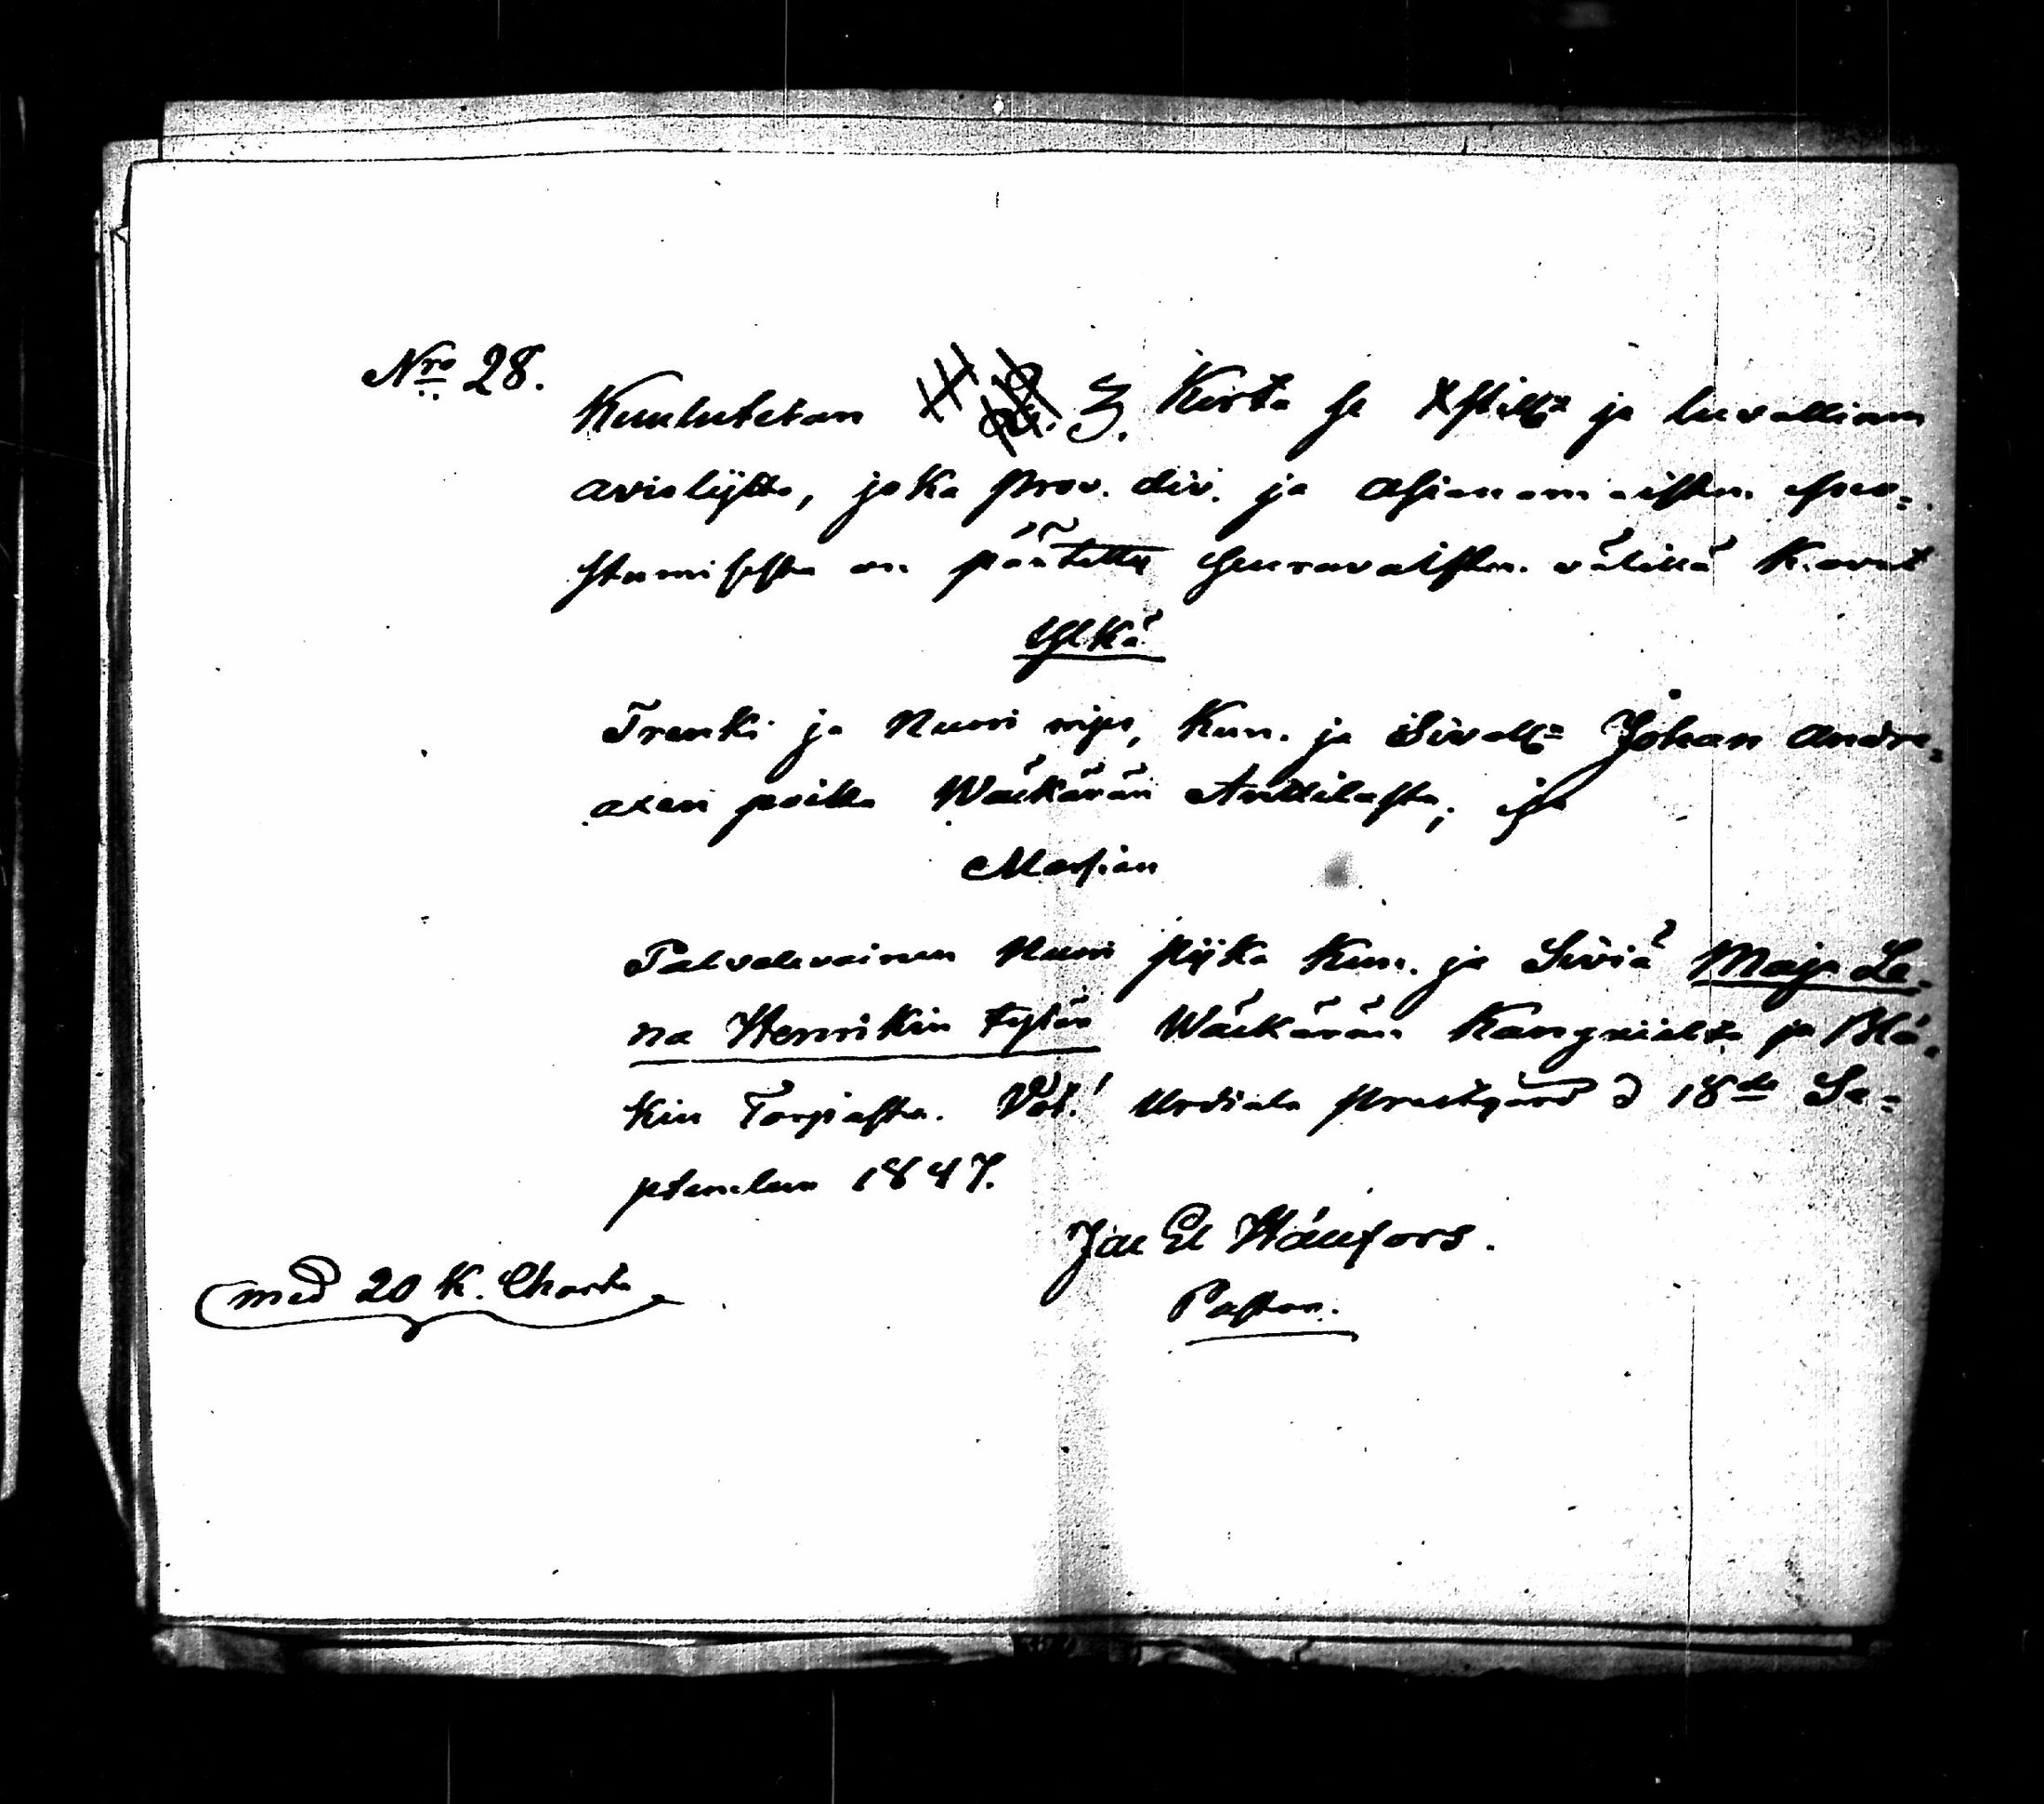 Nro 28.
Kuulutetan 3. Kerta se Xstilln ja luvallinen
aviolijtto, joka prov. div. ja asianomaisten suo-
stumisesta on päätetty seuravaisten välillä k. ovat
Yljkä
Trenki ja Nuori mies, Kun. ja Siválln Johan Andre-
axen poika Wäckärän Anttilasta; ja
Morsian
Palvelevainen Nuori pijka Kun. ja Siviä Maja Le-
na Henrikin tytär Wäckärän Kangrialta ja
kin Torpasta. Vot.! Urdiala prestgård d 18de Se-
ptember 1847.
Pastor.
med 20 K. Charta